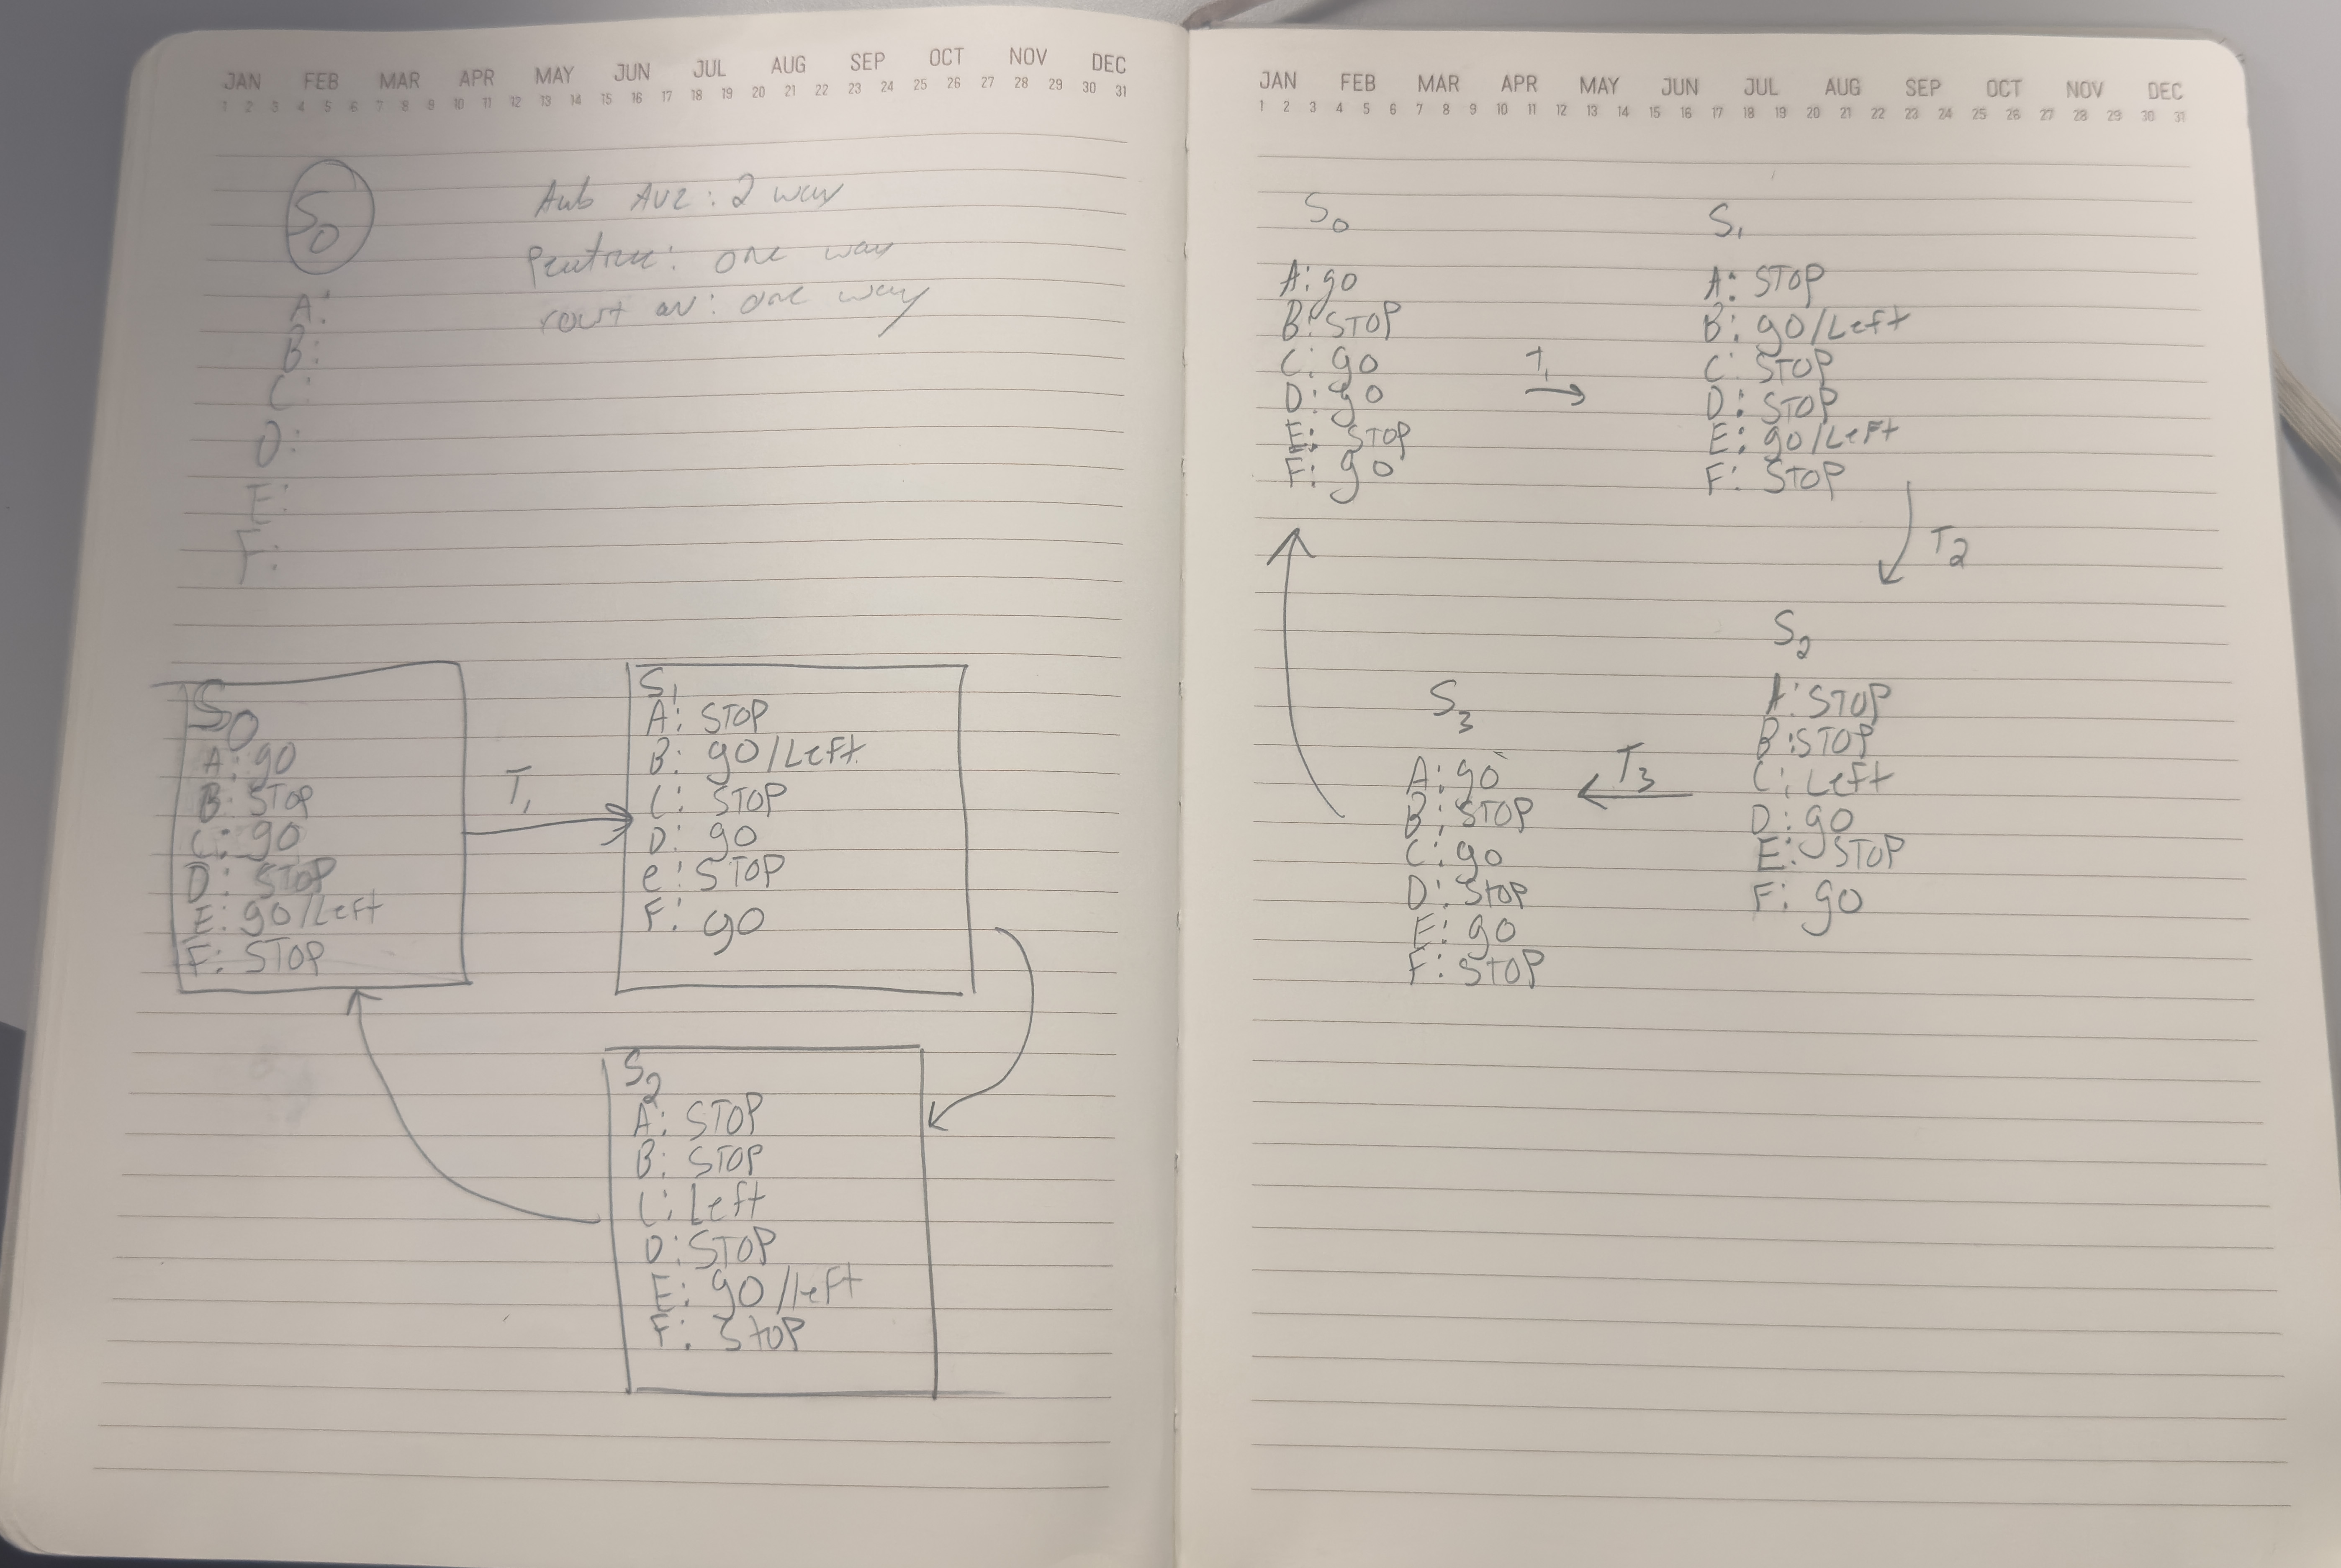 JAN FEB MAR APR MAY JUN JUL AUG SEP OCT NOV DEC
1 2 3 4 5 6 7 8 9 10 11 12 13 14 15 16 17 18 19 20 21 22 23 24 25 26 27 28 29 30 31
S0
Aub AVE: 2 way
one way
av: one way
A:
B:
C:
D:
E:
F:
S0
A: go
B: STOP
C: go
D: STOP
E: go/Left
F: STOP
T1
S1
A: STOP
B: go/Left
C: STOP
D: go
e: STOP
F: go
S2
A: STOP
B: STOP
C: Left
D: STOP
E: go/left
F: STOP
JAN FEB MAR APR MAY JUN JUL AUG SEP OCT NOV DEC
1 2 3 4 5 6 7 8 9 10 11 12 13 14 15 16 17 18 19 20 21 22 23 24 25 26 27 28 29 30 31
S0
A: go
B: STOP
C: go
D: go
E: STOP
F: go
T1
S1
A: STOP
B: go/Left
C: STOP
D: STOP
E: go/Left
F: STOP
T2
S2
A: STOP
B: STOP
C: Left
D: go
E: STOP
F: go
T3
S3
A: go
B: STOP
C: go
D: STOP
E: go
F: STOP